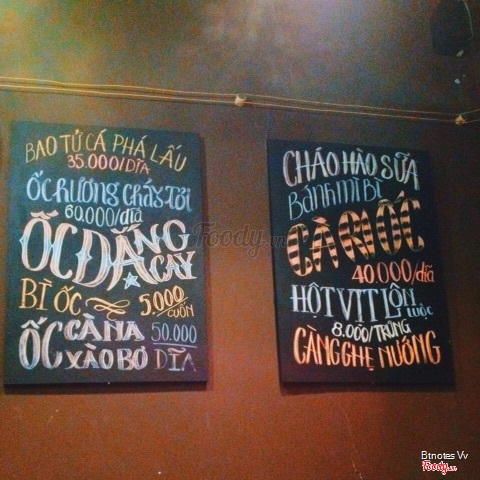 BAO TỬ CÁ PHÁ LẤU
35.000/DĨA
ỐC HƯƠNG CHÁY TỎI
60.000/dĩa
ỐC ĐẮNG CAY
BÌ ỐC 5.000/CUỐN
ỐC CÀ NA XÀO BƠ 50.000 DĨA
CHÁO HÀO, SỮA
BÁNH MÌ BÌ
CÀ RI ỐC
40.000/dĩa
HỘT VỊT LỘN LUỘC
8.000/TRỨNG
CÀNG GHẸ NƯỚNG
Foody.vn
Btnotes Vv
Foody.vn